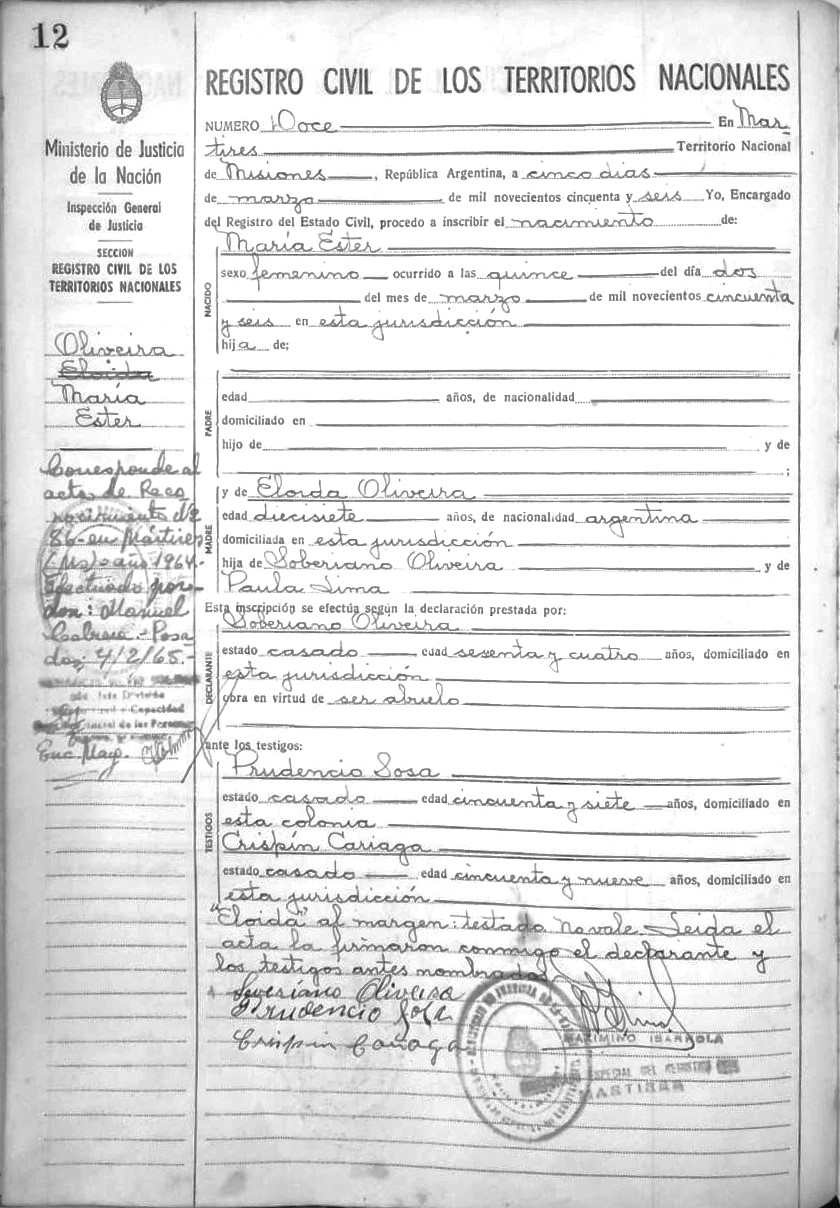 12
Ministerio de Justicia
de la Nación
Inspección General
de Justicia
SECCION
REGISTRO CIVIL DE LOS
TERRITORIOS NACIONALES
Oliveira
Eloida
María
Ester
Corresponde al
acta de Reco
nocimiento Nº
86- en Mártires
(Ms) año 1964.-
efectuado por
don: Manuel
Cabrera.- Posa
das, 4/2/65.-
Enc. May.
REGISTRO CIVIL DE LOS TERRITORIOS NACIONALES
NUMERO Doce En Mar-
tires Territorio Nacional
de Misiones, República Argentina, a cinco dias
de marzo de mil novecientos cincuenta y seis Yo, Encargado
del Registro del Estado Civil, procedo a inscribir el nacimiento de:
NACIDO
María Ester
sexo femenino ocurrido a las quince del día dos
del mes de marzo de mil novecientos cincuenta
y seis en esta jurisdicción
hija de;
PADRE
edad años, de nacionalidad
domiciliado en
hijo de y de
;
MADRE
y de Eloida Oliveira
edad diecisiete años, de nacionalidad argentina
domiciliada en esta jurisdicción
hija de Soberiano Oliveira y de
Paula Lima
Esta inscripción se efectúa según la declaración prestada por:
DECLARANTE
Soberiano Oliveira
estado casado edad sesenta y cuatro años, domiciliado en
esta jurisdicción
obra en virtud de ser abuelo
ante los testigos:
TESTIGOS
Prudencio Sosa
estado casado edad cincuenta y siete años, domiciliado en
esta colonia
Crispín Cariaga
estado casado edad cincuenta y nueve años, domiciliado en
esta jurisdicción
"Eloida" al margen: testado no vale. Leida el
acta la firmaron conmigo el declarante y
los testigos antes nombrados
Severiano Oliveira
Prudencio Sosa
Crispin Cariaga
MAXIMINO IBARROLA
ESPECIAL DEL REGISTRO
MARTIRES